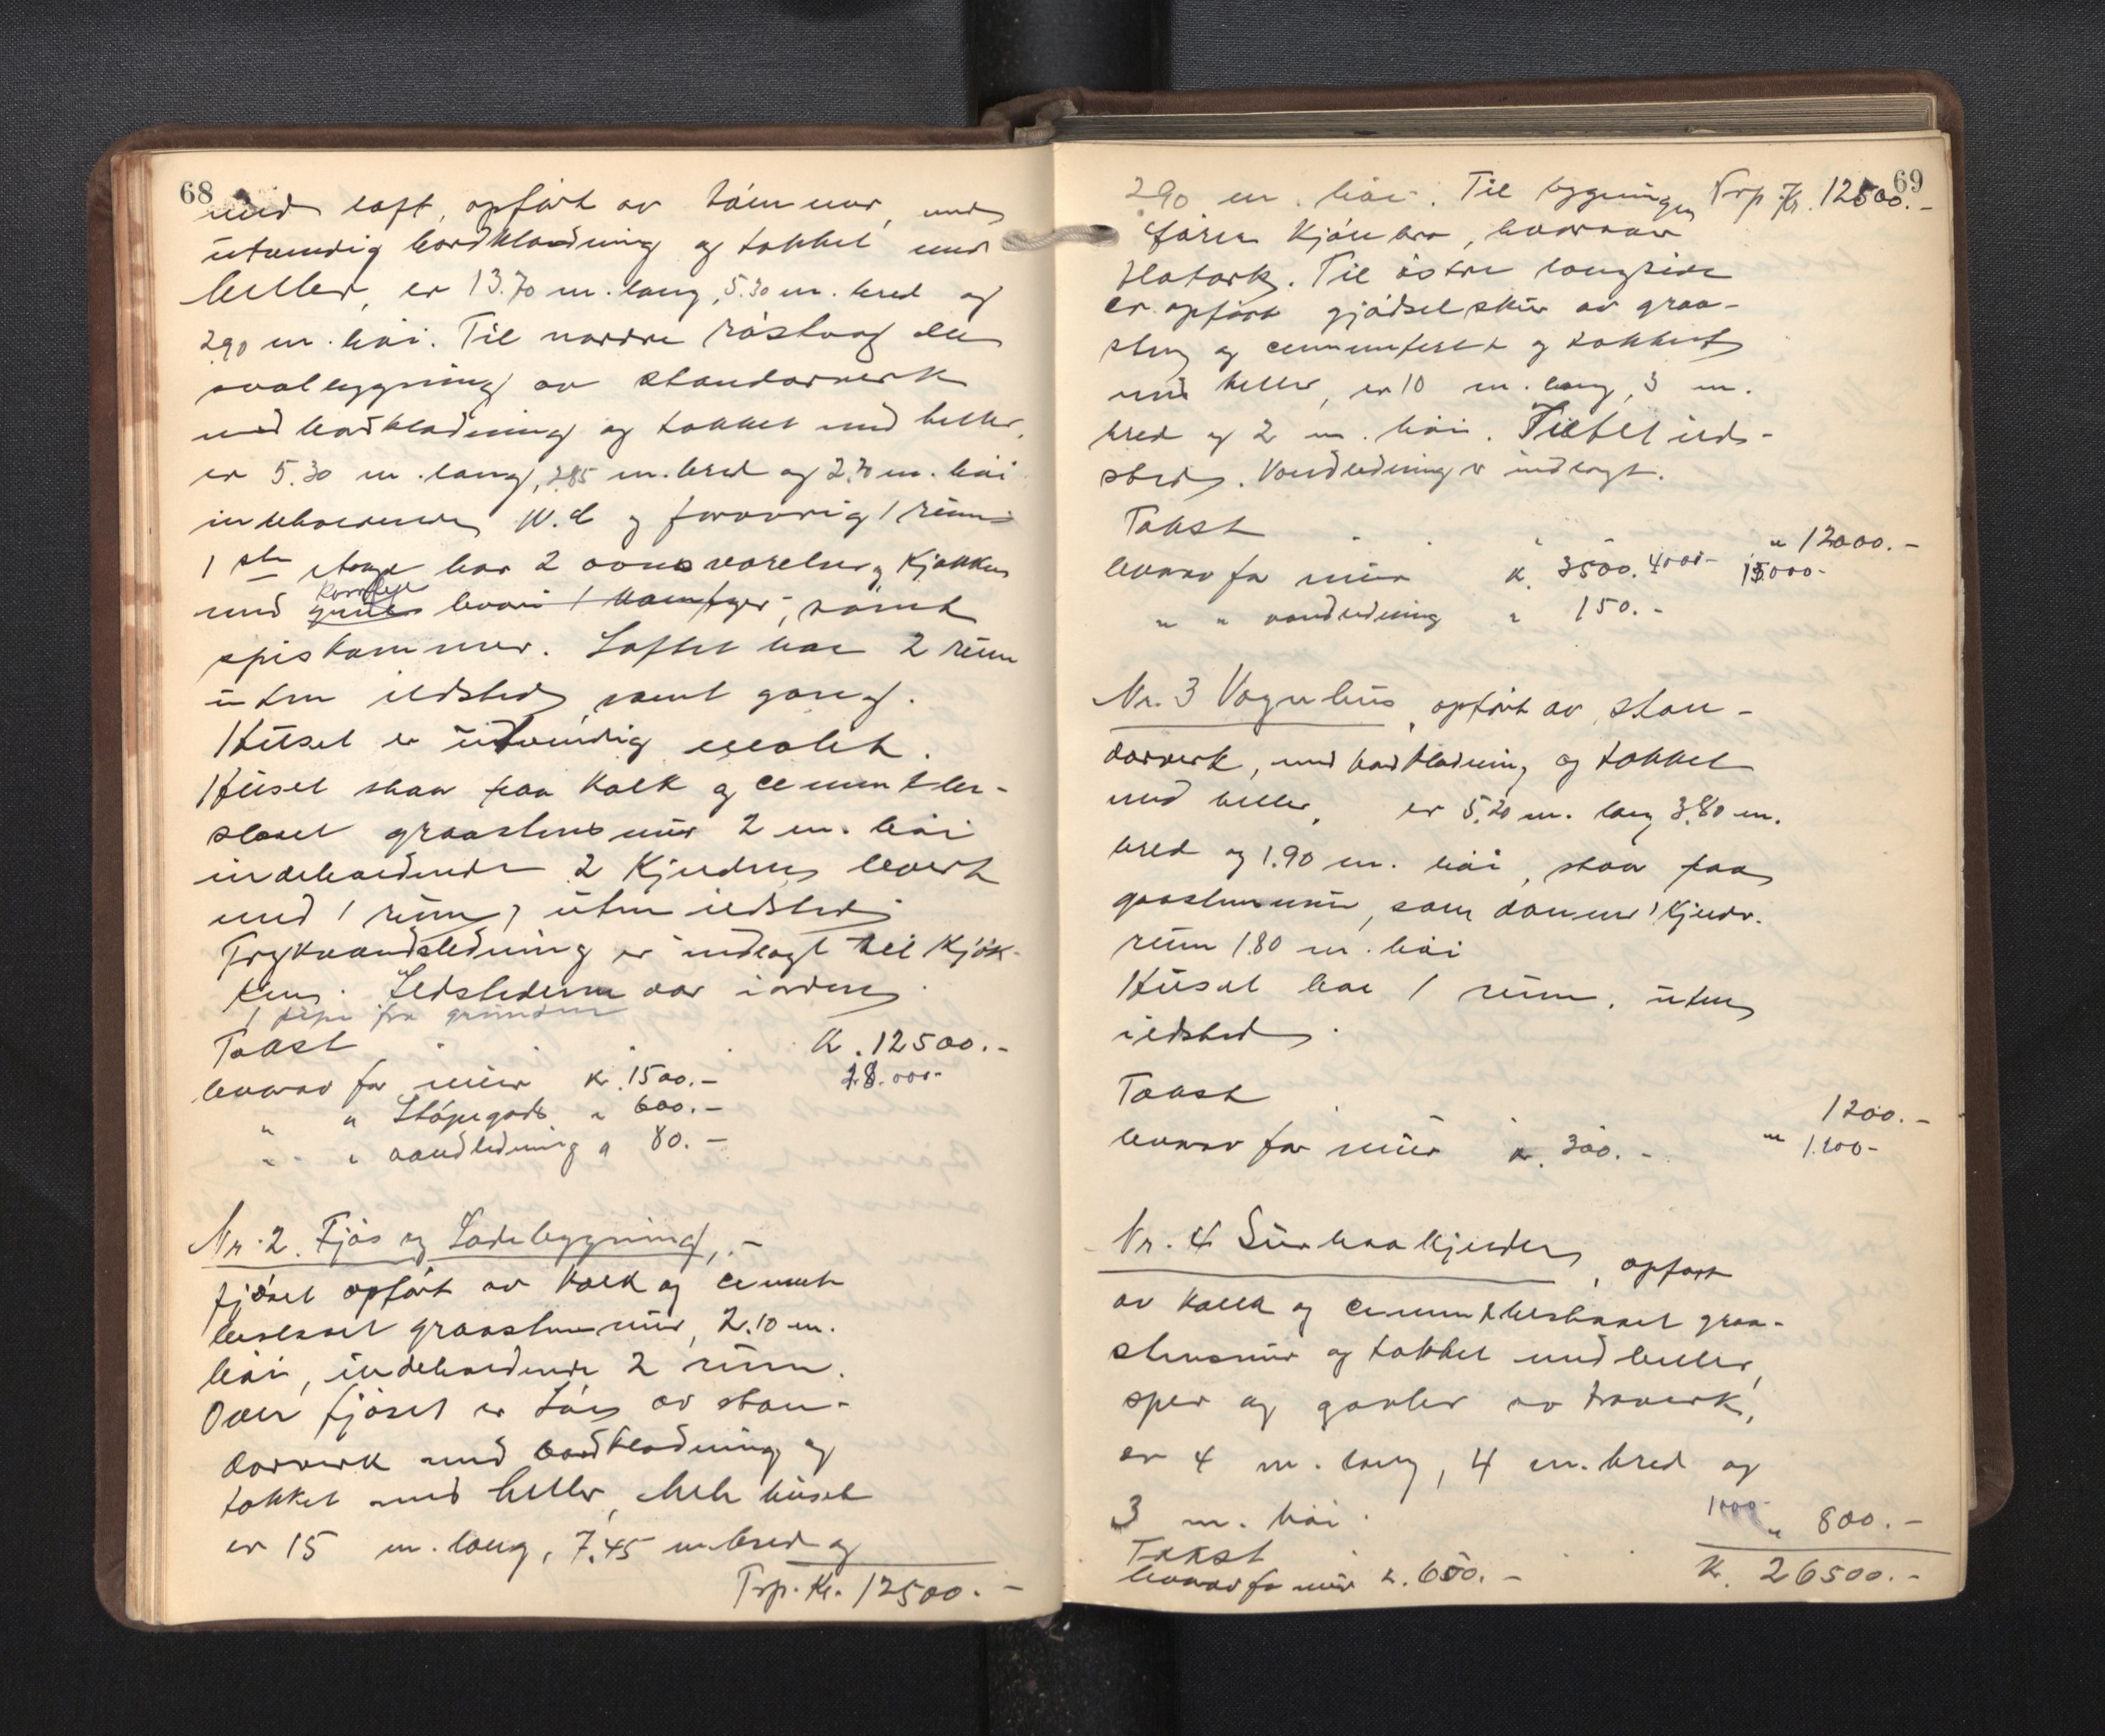 68
med loft, opført av tømmer, med
utvendig bordklædning og tækket med
heller, er 13.70 m. lang, 5.30 m. bred og
2.90 m. høi. Til nordre røstvæg en
svalbygning av standarverk
med bordklædning og tækket med heller,
er 5.30 m. lang, 2.85 m. bred og 2.70 m. høi
indeholdende W.C og forøvrig 1 rum
1ste etage har 2 ovnsværelser, kjøkken
med grue hvori 1 komfyr, samt
komfyr
spiskammer. Loftet har 2 rum
uten ildsted samt gang.
Huset er utvendig malet.
Huset staar paa kalk og cementbe-
slaaet graastensmur 2 m. høi
indeholdende 2 kjeldere hvert
med 1 rum, uten ildsted
Trykvandsledning er indlagt til kjøk-
ken. Ildstederne var i orden.
1 pipe fra grunden
Takst Kr. 12500.-
herav for mur Kr. 1500.- 28.000-
" " Støpegods " 600.-
" " vandledning " 80.-
Nr. 2. Fjøs og Ladebygning,.-
fjøset opført av kalk og cement
beslaaet graastensmur, 2.10 m.
høi, indeholdende 2 rum.
Over fjøset er Løe av stan-
darverk med bordklædning og
tækket med heller, hele huset
er 15 m. lang, 7.45 m. bred og
Trp. Kr. 12500.-
69
2.90 m. høi. Til bygningen Trp. Kr. 12500.-
fører kjørebro, hvorav
Til østre langside
er opført gjødselskur av graa-
sten og cementstøpt og tækket
med heller, er 10 m. lang, 3 m.
bred og 2 m. høi. Intet ild-
sted. Vandledning er indlagt.
Takst " 12000.-
herav for mur Kr. 3500. 4000- 15.000-
" " vandledning " 150.-
Nr. 3 Vognhus, opført av stan-
darverk, med bordklædning og tækket
med heller, er 5.20 m. lang 3.80 m.
bred og 1.90 m. høi, staar paa
graastensmur, som danner 1 kjelder-
rum 1.80 m. høi
Huset har 1 rum, uten
ildsted.
Takst 1200.-
herav for mur Kr. 300.- " 1.200-
Nr. 4 Surhaakjelder, opført
av kalk og cementbeslaaet graa-
stensmur og tækket med heller,
sper og gavler av træverk,
er 4 m. lang, 4 m. bred og
3 m. høi. 1000-
Takst " 800.-
herav for mur Kr. 600.- Kr. 26500.-